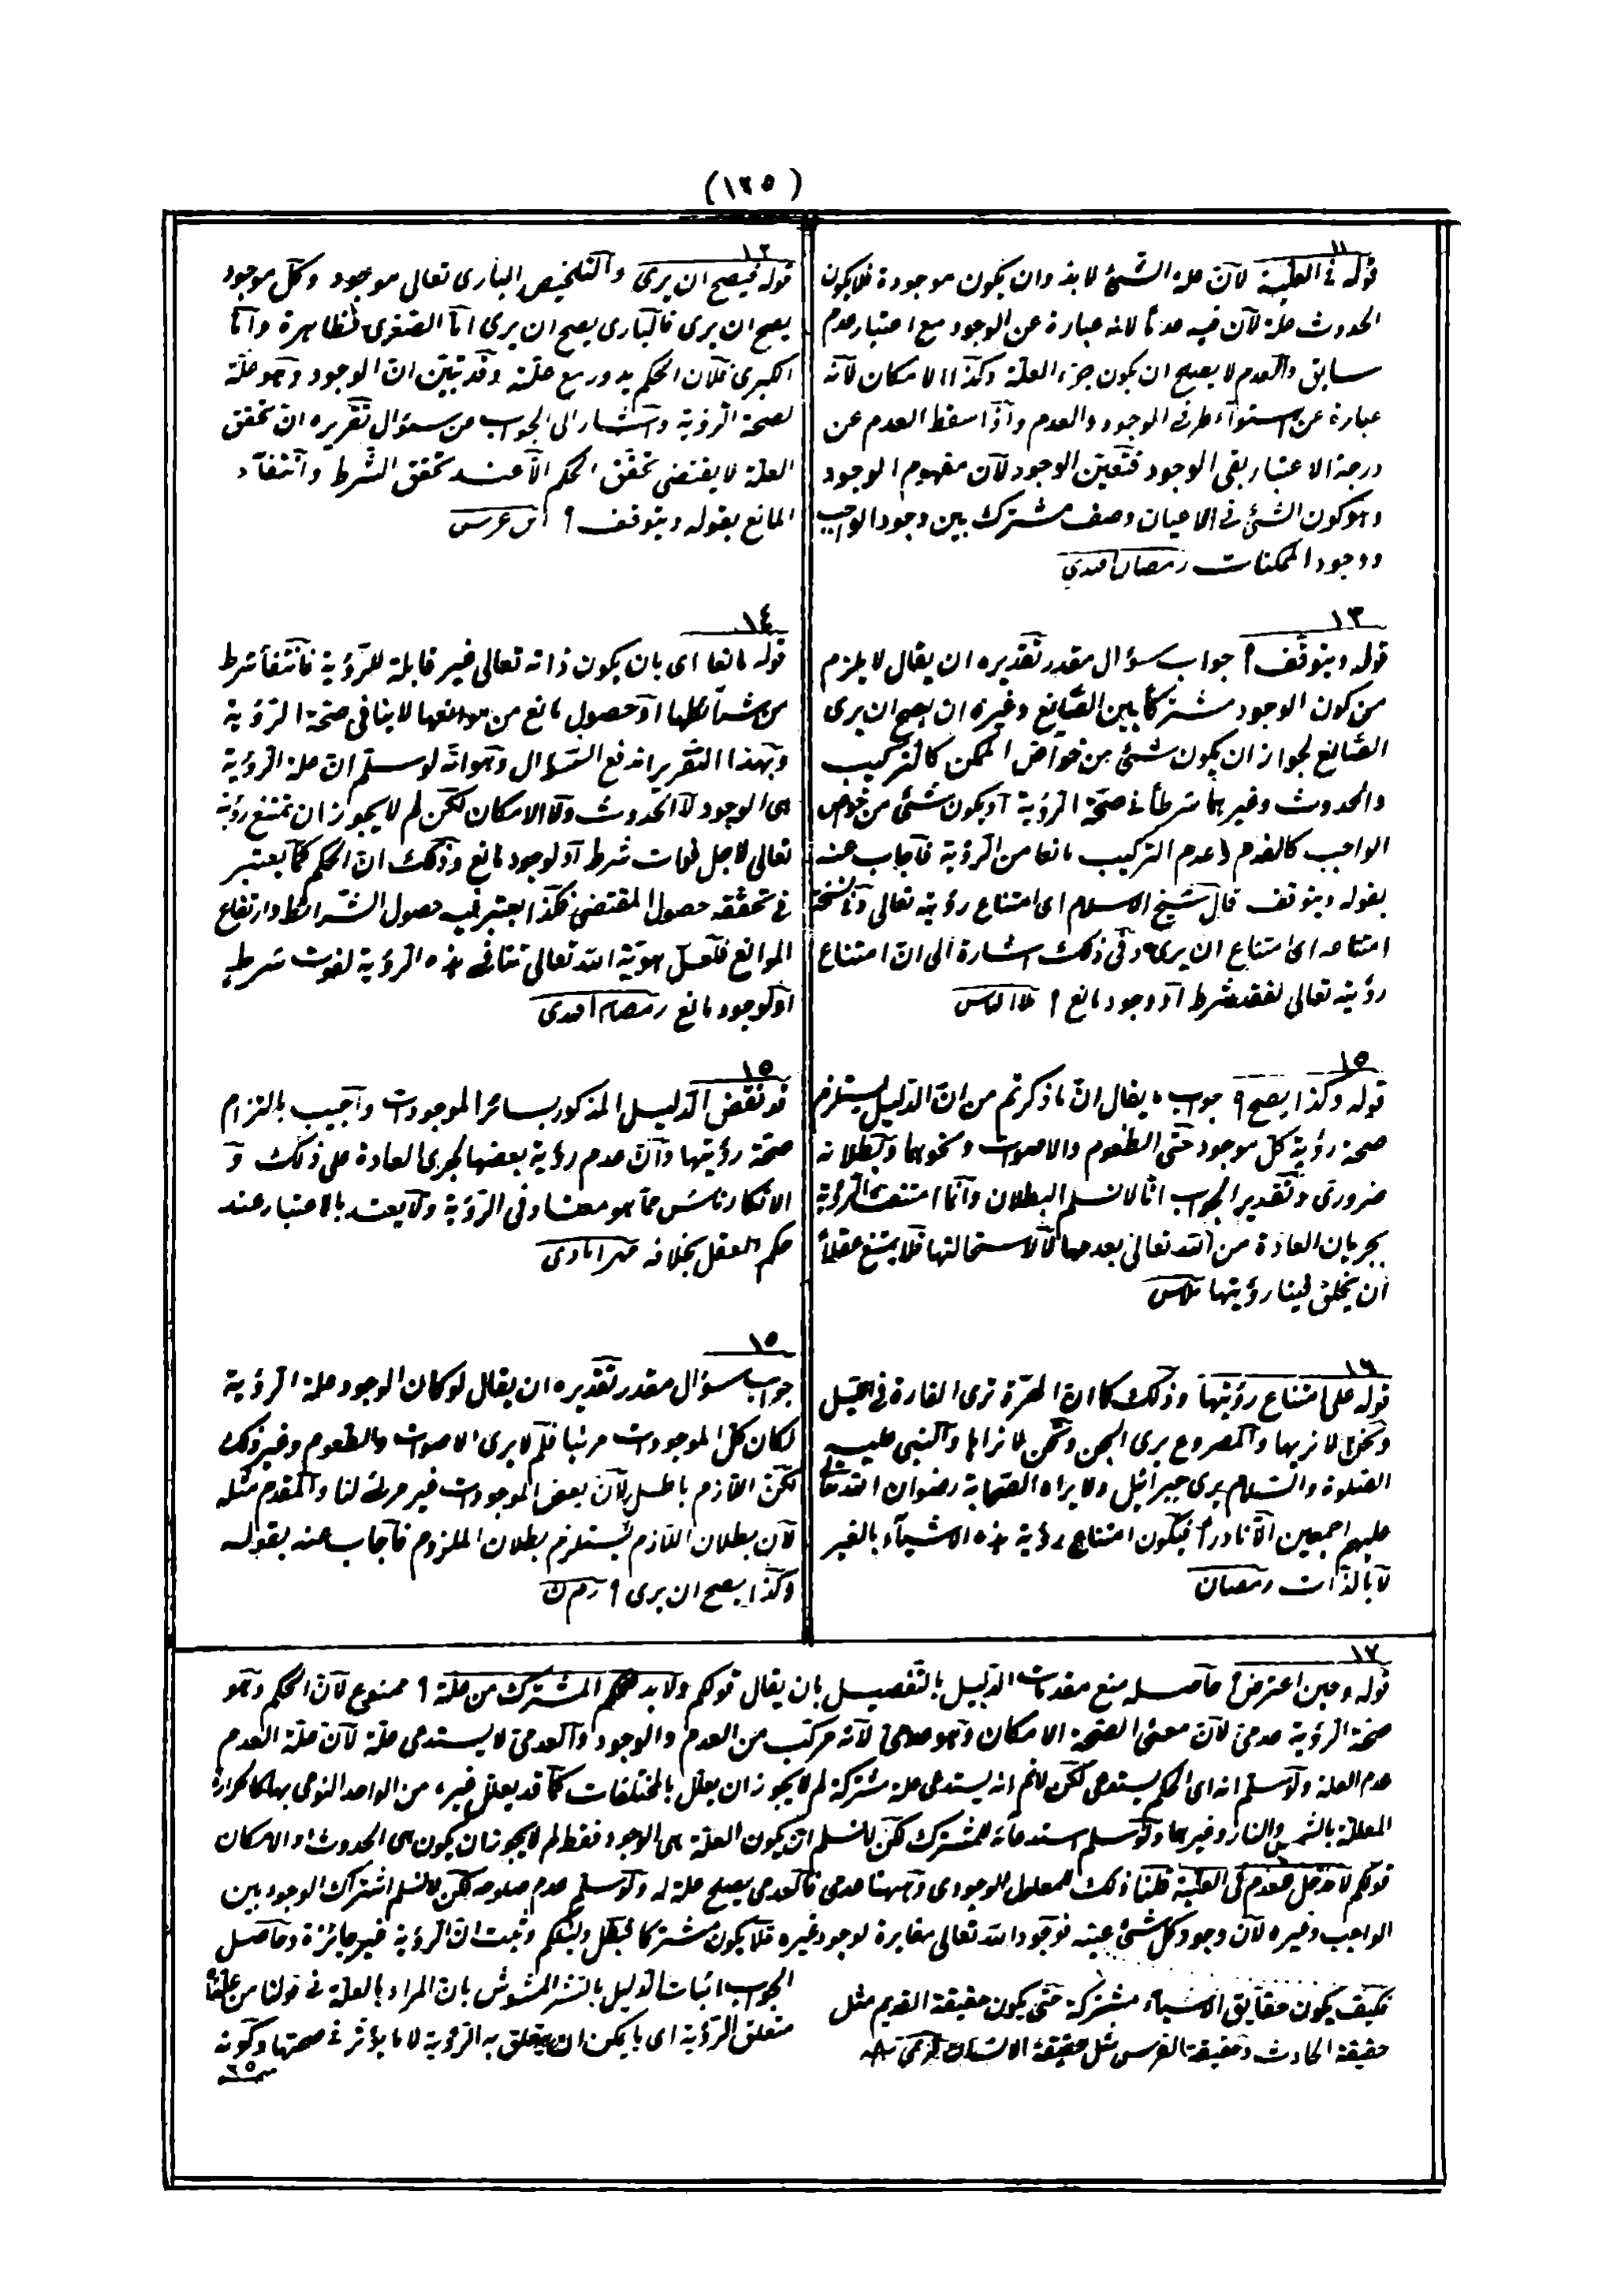 (١٢٥)
١١
قوله في العلية لان علة الشئ لا بد وان يكون موجودة فلا يكون
الحدوث علة لان فيه عدماً لانه عبارة عن الوجود مع اعتبار عدم
سابق والعدم لا يصلح ان يكون جزء العلة وكذا الامكان لانه
عبارة عن استواء طرفى الوجود والعدم واذا سقط العدم عن
درجة الاعتبار بقى الوجود فتعين الوجود لان مفهوم الوجود
وهو كون الشئ في الاعيان وصف مشترك بين وجود الواجب
ووجود الممكنات رمضان افندى
١٢
قوله فيصح ان يرى والتلخيص البارى تعالى موجود وكل موجود
يصح ان يرى فالبارى يصح ان يرى اما الصغرى فظاهرة واما
الكبرى فلان الحكم يدور مع علته وقد تبين ان الوجود وهو علة
لصحة الرؤية واشار الى الجواب من سؤال تقريره ان تحقق
العلة لا يقتضى تحقق الحكم الا عند تحقق الشرط وانتفاء
المانع بقوله ويتوقف ٩ ابن عرس
١٣
قوله ويتوقف ٩ جواب سؤال مقدر تقديره ان يقال لا يلزم
من كون الوجود مشتركاً بين الصانع وغيره ان يصح ان يرى
الصانع لجواز ان يكون شئ من خواص الممكن كالتركيب
والحدوث وغيرهما شرطاً في صحة الرؤية او يكون شئ من خواص
الواجب كالقدم وعدم التركيب مانعا من الرؤية فاجاب عنه
بقوله ويتوقف قال شيخ الاسلام اى امتناع رؤيته تعالى وفي نسخة
امتناعه اى امتناع ان يرى وفى ذلك اشارة الى ان امتناع
رؤيته تعالى لفقد شرط او وجود مانع ٩ ملا الياس
١٤
قوله مانعا اى بان يكون ذاته تعالى غير قابلة للرؤية فانتفاء شرط
من شرائطها او حصول مانع من موانعها لا ينافى صحة الرؤية
وبهذا التقرير اندفع السؤال وهو انه لو سلم ان علة الرؤية
هى الوجود لا الحدوث ولا الامكان لكن لم لا يجوز ان تمتنع رؤية
تعالى لاجل فوات شرط او لوجود مانع وذلك ان الحكم كما يعتبر
في تحققه حصول المقتضى فكذا يعتبر فيه حصول الشرائط وارتفاع
الموانع فلعل هوية الله تعالى تنافى هذه الرؤية لفوت شرط
او لوجود مانع رمضان افندى
١٥
قوله وكذا يصح ٩ جواب ما يقال ان ما ذكرتم من ان الدليل يستلزم
صحة رؤية كل موجود حتى الطعوم والاصوات ونحوهما وبطلانه
ضرورى وتقدير الجواب انا لا نسلم البطلان وانما امتنعت الرؤية
بجريان العادة من الله تعالى بعدمها لا لاستحالتها فلا يمتنع عقلاً
ان يخلق فينا رؤيتها
١٥
قد نقض الدليل المذكور بسائر الموجودات واجيب بالتزام
صحة رؤيتها وان عدم رؤية بعضها لجرى العادة على ذلك و
الانكار ناش مما هو معتاد فى الرؤية ولا يعتد بالاعتبار عند
حكم العقل بخلافه مهرآبادى
١٦
قوله على امتناع رؤيتها وذلك كما ان الهرة ترى الفارة في الليل
ونحن لا نريها والمصروع يرى الجن ونحن لا نراها والنبى عليه
الصلوة والسلام يرى جبرائيل ولا يراه الصحابة رضوان الله تعالى
عليهم اجمعين الا نادراً فيكون امتناع رؤية هذه الاشياء بالغير
لا بالذات رمضان
١٥
جواب سؤال مقدر تقديره ان يقال لو كان الوجود علة الرؤية
لكان كل الموجودات مرئيا فلم لا يرى الاصوات والطعوم وغير ذلك
لكن اللازم باطل لان بعض الموجودات غير مرئى لنا والمقدم مثله
لان بطلان اللازم يستلزم بطلان الملزوم فاجاب عنه بقوله
وكذا يصح ان يرى ٩
١٧
قوله وحين اعترض ٩ حاصله منع مقدمات الدليل بالتفصيل بان يقال قولكم ولا بد للحكم المشترك من علة ٩ ممنوع لان الحكم وهو
صحة الرؤية عدمى لان معنى الصحة الامكان وهو عدمى لانه مركب من العدم والوجود والعدمى لا يستدعى علة لان علة العدم
عدم العلة ولو سلم انه اى الحكم يستدعى لكن لانم انه يستدعى علة مشتركة لم لا يجوز ان يعلل بالمختلفات كما قد يعلل غيره من الواحد النوعى بها كالحرارة
المعللة بالشمس والنار وغيرهما ولو سلم استدعاءه للمشترك لكن لا نسلم ان يكون العلة هى الوجود فقط لم لا يجوز ان يكون هى الحدوث او الامكان
قولكم لا مدخل للعدم في العلية قلنا ذلك للمعلول الوجودى وههنا عدمى فالعدمى يصلح علة له ولو سلم عدم صلوحه لكن لا نسلم اشتراك الوجود بين
الواجب وغيره لان وجود كل شئ عينه فوجود الله تعالى مغايرة لوجود غيره فلا يكون مشتركا فبطل دليلكم وثبت ان الرؤية غير جائزة وحاصل
فكيف يكون حقايق الاشياء مشتركة حتى يكون حقيقة القديم مثل
حقيقة الحادث وحقيقة الفرس مثل حقيقة الانسان
الجواب اثبات الدليل بالنشر المشوش بان المراد بالعلة في قولنا من علة
متعلق الرؤية اى ما يمكن ان يتعلق به الرؤية لا ما يؤثر في صحتها وكونه